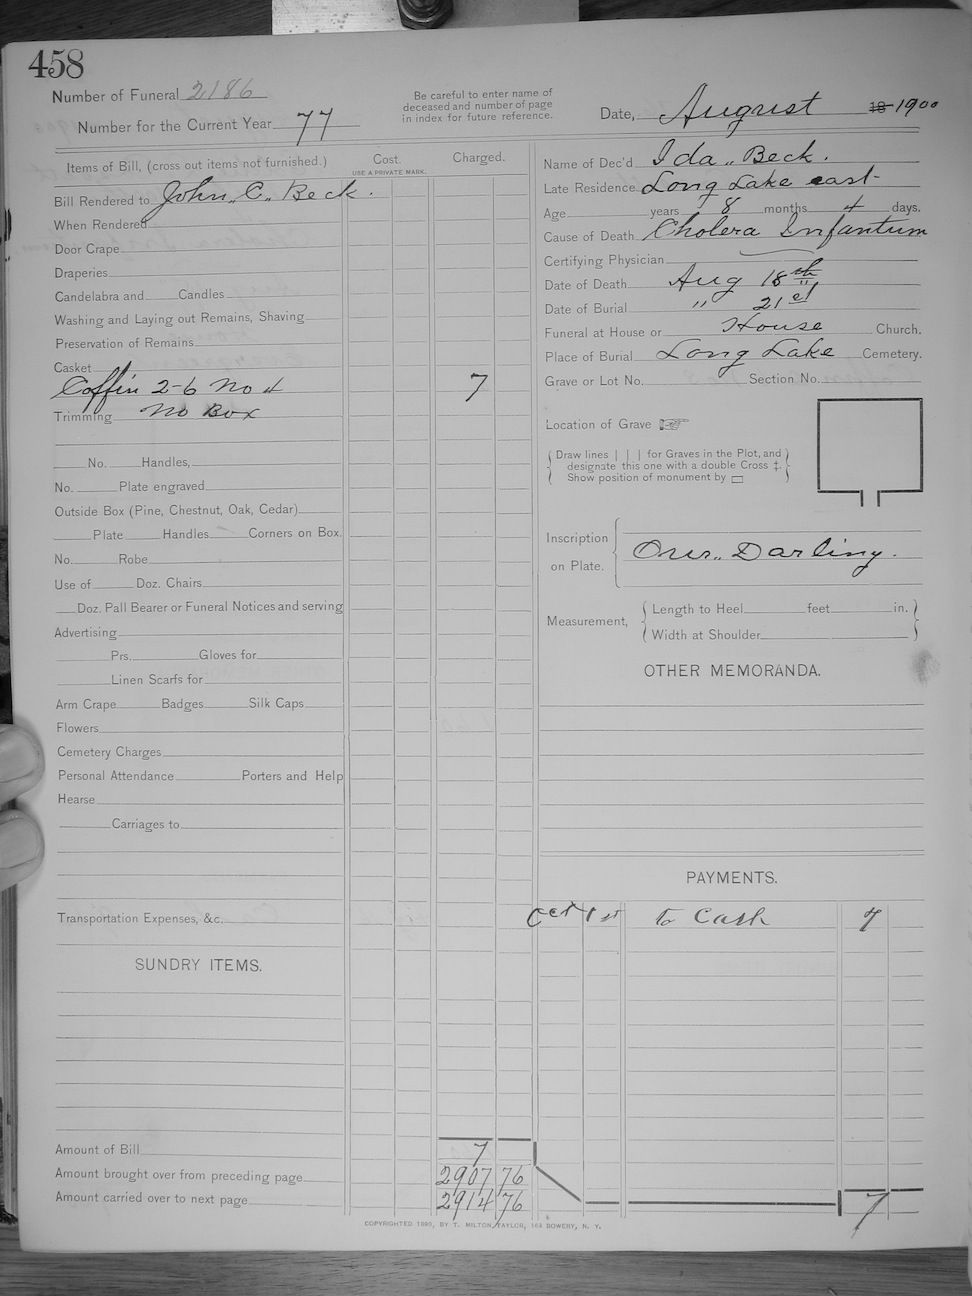 458
Number of Funeral 2186
Number for the Current Year 77
Be careful to enter name of
deceased and number of page
in index for future reference.
Date, August 18 1900
Items of Bill, (cross out items not furnished.)
Cost.
USE A PRIVATE MARK.
Charged.
Bill Rendered to John. C. Beck.
When Rendered
Door Crape
Draperies
Candelabra and Candles
Washing and Laying out Remains, Shaving
Preservation of Remains
Casket
Coffin 2-6 No 4 7
Trimming No Box
No. Handles,
No. Plate engraved
Outside Box (Pine, Chestnut, Oak, Cedar)
Plate Handles Corners on Box.
No. Robe
Use of Doz. Chairs
Doz. Pall Bearer or Funeral Notices and serving
Advertising
Prs. Gloves for
Linen Scarfs for
Arm Crape Badges Silk Caps
Flowers
Cemetery Charges
Personal Attendance Porters and Help
Hearse
Carriages to
Transportation Expenses, &c.
SUNDRY ITEMS.
Amount of Bill 7
Amount brought over from preceding page 2907 76
Amount carried over to next page 2914 76
Name of Dec'd Ida.. Beck.
Late Residence Long Lake east
Age years 8 months 4 days.
Cause of Death Cholera Infantum
Certifying Physician
Date of Death Aug 18th
Date of Burial " 21st
Funeral at House or House Church.
Place of Burial Long Lake Cemetery.
Grave or Lot No. Section No.
Location of Grave
Draw lines | | | for Graves in the Plot, and
designate this one with a double Cross ‡.
Show position of monument by □
Inscription
on Plate.
Our.. Darling.
Measurement,
Length to Heel feet in.
Width at Shoulder
OTHER MEMORANDA.
PAYMENTS.
Oct 1st To Cash 7
7
COPYRIGHTED 1890, BY T. MILTON TAYLOR, 164 BOWERY, N. Y.